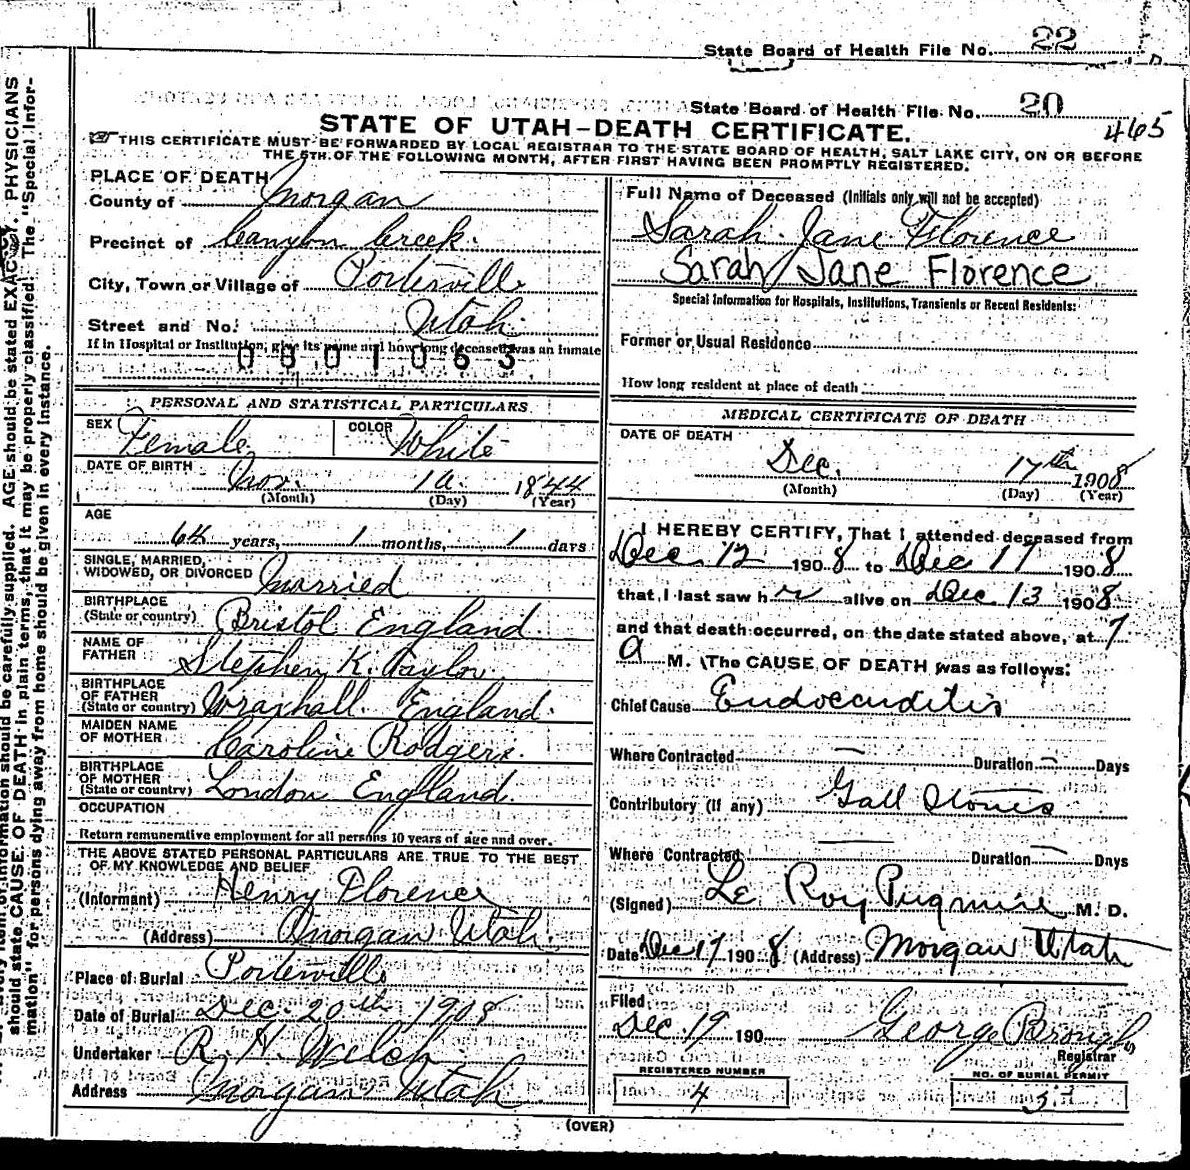 State Board of Health File No. 22
State Board of Health File No. 20
465
STATE OF UTAH–DEATH CERTIFICATE.
THIS CERTIFICATE MUST BE FORWARDED BY LOCAL REGISTRAR TO THE STATE BOARD OF HEALTH, SALT LAKE CITY, ON OR BEFORE
THE 5TH OF THE FOLLOWING MONTH, AFTER FIRST HAVING BEEN PROMPTLY REGISTERED.
PLACE OF DEATH
County of Morgan
Precinct of Canyon Creek.
City, Town or Village of Porterville
Street and No. Utah
If in Hospital or Institution, give its name and how long deceased was an inmate
0801063
PERSONAL AND STATISTICAL PARTICULARS
SEX Female COLOR White
DATE OF BIRTH Nov. 16 1844
(Month) (Day) (Year)
AGE
64 years, 1 months, 1 days
SINGLE, MARRIED,
WIDOWED, OR DIVORCED Married
BIRTHPLACE
(State or country) Bristol England.
NAME OF
FATHER Stephen K. Taylor.
BIRTHPLACE
OF FATHER
(State or country) Wraxhall England.
MAIDEN NAME
OF MOTHER Caroline Rodgers.
BIRTHPLACE
OF MOTHER
(State or country) London England.
OCCUPATION
Return remunerative employment for all persons 10 years of age and over.
THE ABOVE STATED PERSONAL PARTICULARS ARE TRUE TO THE BEST
OF MY KNOWLEDGE AND BELIEF
(Informant) Henry Florence
(Address) Morgan Utah.
Place of Burial Porterville
Date of Burial Dec. 20th 1908
Undertaker R. H. Welch
Address Morgan Utah
Full Name of Deceased (Initials only will not be accepted)
Sarah Jane Florence
Sarah Jane Florence
Special Information for Hospitals, Institutions, Transients or Recent Residents:
Former or Usual Residence
How long resident at place of death
MEDICAL CERTIFICATE OF DEATH
DATE OF DEATH
Dec. 17th 1908
(Month) (Day) (Year)
I HEREBY CERTIFY, That I attended deceased from
Dec. 12 1908 to Dec 17 1908
that I last saw her alive on Dec. 13 1908
and that death occurred, on the date stated above, at 7
a M. The CAUSE OF DEATH was as follows:
Chief Cause Endocarditis
Where Contracted — Duration — Days
Contributory (if any) Gall Stones
Where Contracted — Duration — Days
(Signed) Le Roy Pugmire M. D.
Date Dec 17 1908 (Address) Morgan Utah
Filed
Dec. 19 190 George Brough
Registrar
REGISTERED NUMBER
4
NO. OF BURIAL PERMIT
(OVER)
AGE should be stated EXACTLY. PHYSICIANS
should state CAUSE OF DEATH in plain terms, that it may be properly classified. The "Special Infor-
mation" for persons dying away from home should be given in every instance.